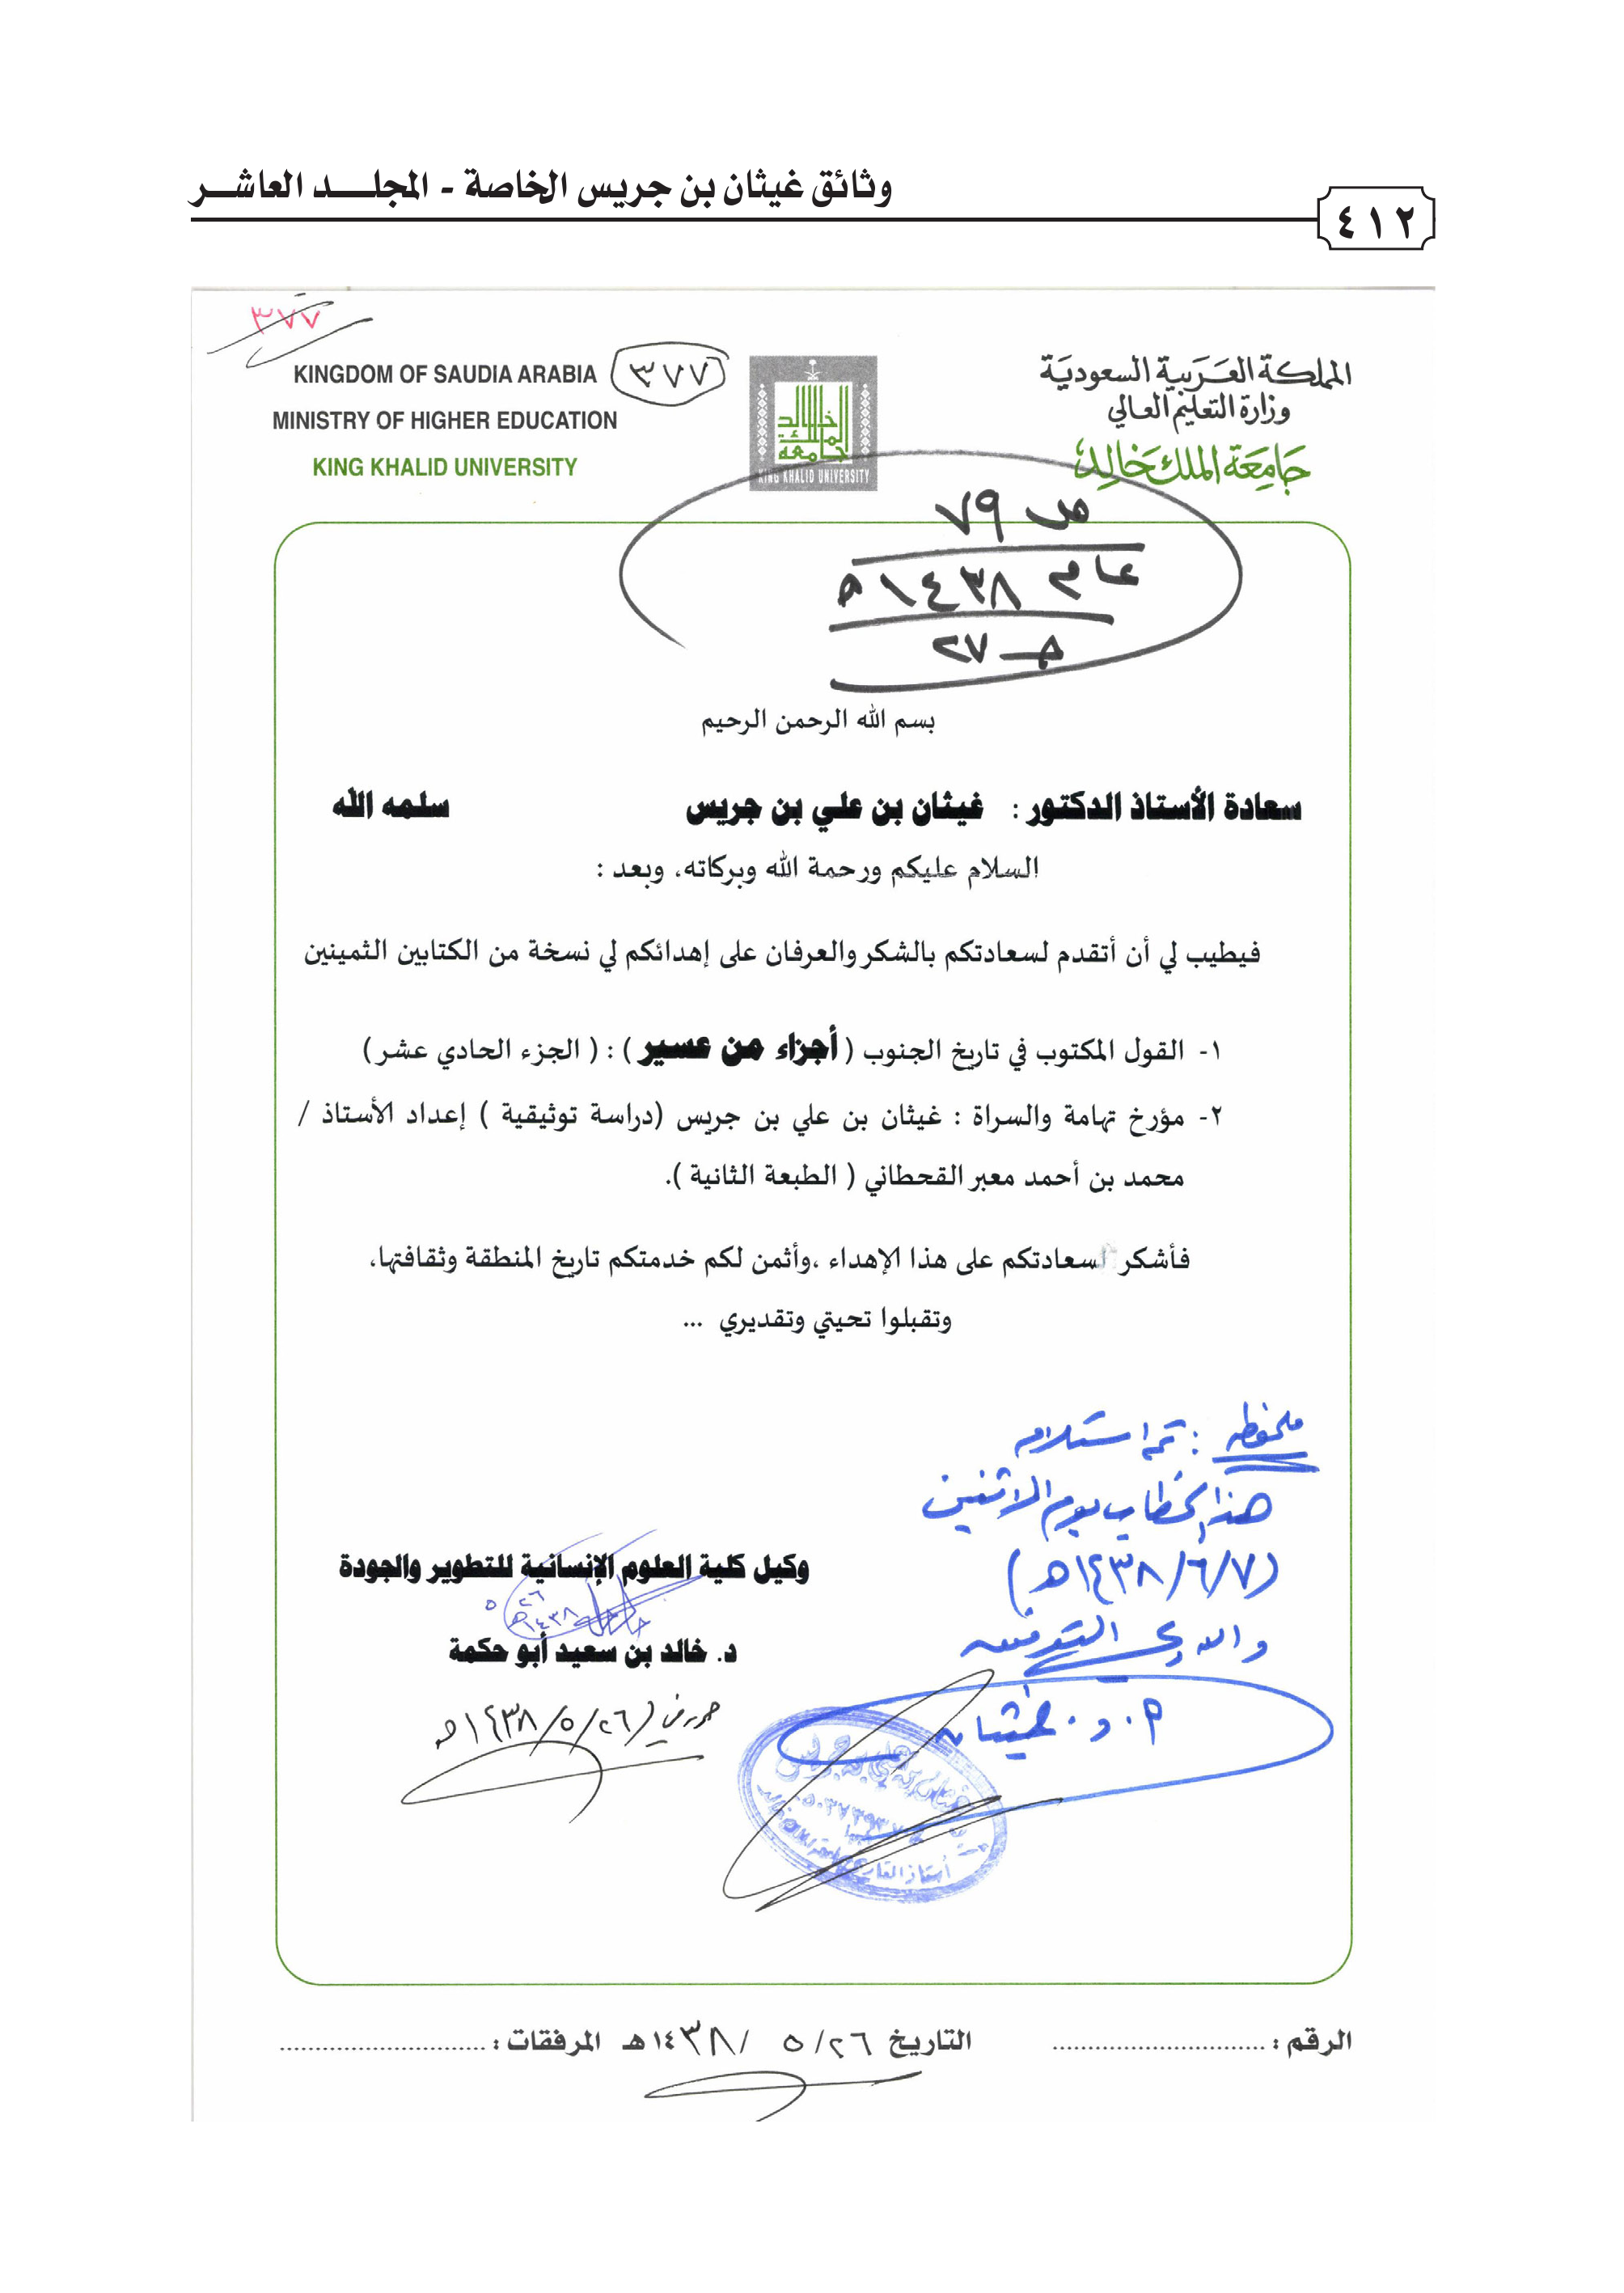 وثائق غيثان بن جريس الخاصة - المجلد العاشر
٤١٢
٣٧٧
KINGDOM OF SAUDIA ARABIA
٣٧٧
MINISTRY OF HIGHER EDUCATION
KING KHALID UNIVERSITY
جامعة الملك خالد
KING KHALID UNIVERSITY
المملكة العربية السعودية
وزارة التعليم العالي
جامعة الملك خالد
ص ٧٩
عام ١٤٣٨ هـ
جـ ٢٧
بسم الله الرحمن الرحيم
سعادة الأستاذ الدكتور : غيثان بن علي بن جريس سلمه الله
السلام عليكم ورحمة الله وبركاته، وبعد :
فيطيب لي أن أتقدم لسعادتكم بالشكر والعرفان على إهدائكم لي نسخة من الكتابين الثمينين
١- القول المكتوب في تاريخ الجنوب (أجزاء من عسير) : ( الجزء الحادي عشر)
٢- مؤرخ تهامة والسراة : غيثان بن علي بن جريس (دراسة توثيقية ) إعداد الأستاذ /
محمد بن أحمد معبر القحطاني ( الطبعة الثانية ).
فأشكر لسعادتكم على هذا الإهداء ،وأثمن لكم خدمتكم تاريخ المنطقة وثقافتها،
وتقبلوا تحيتي وتقديري ...
ملحوظه : تم استلام
هذا الخطاب يوم الاثنين
(١٤٣٨/٦/٧هـ)
والله ولي التوفيق
أ. د. غيثان
وكيل كلية العلوم الإنسانية للتطوير والجودة
٢٦ ٥
١٤٣٨هـ
د. خالد بن سعيد أبو حكمة
حرر في (٢٦/٥/١٤٣٨هـ
الرقم : ............................
التاريخ ٢٦/ ٥ /١٤٣٨هـ
المرفقات : ............................